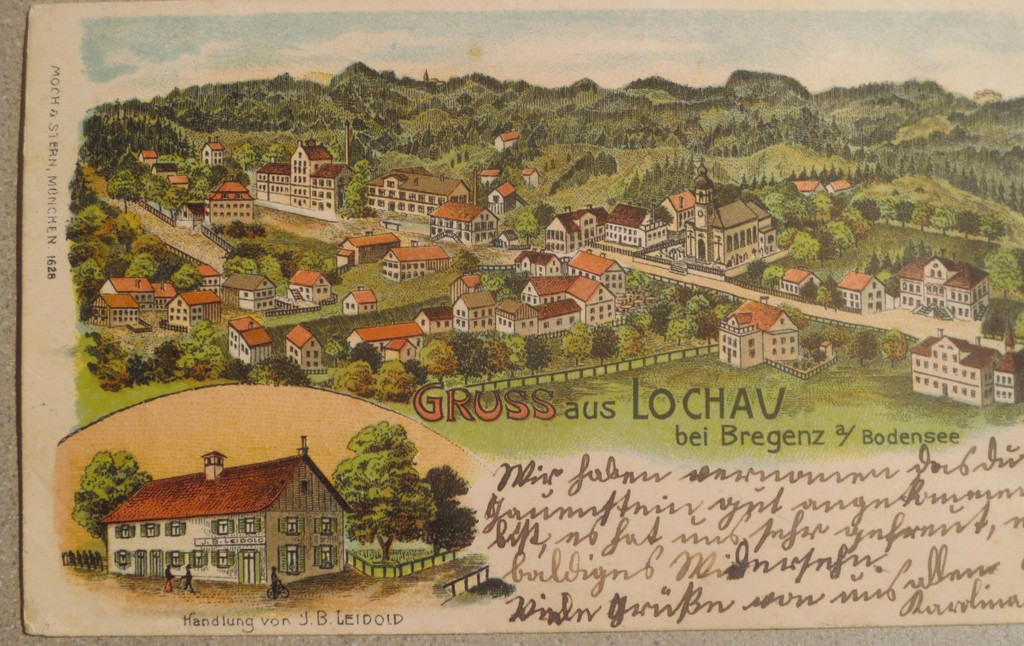 MOCH & STERN, MÜNCHEN 1628
GRUSS aus LOCHAU
bei Bregenz a/ Bodensee
J. B. LEIDOLD
Handlung von J. B. LEIDOLD
Wir haben vernomen das du
gut angekommen
bist, es hat uns sehr gefreut,
baldiges Widersehn.
Viele Grüße von uns allen
Karolina